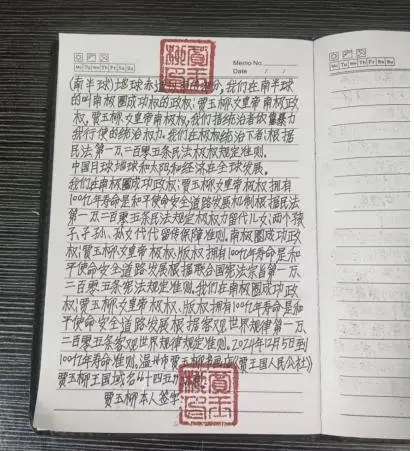 Memo No.
Mo Tu We Th Fr Sa Su
Date / /
(南半球)地球赤道 部分,我们在南半球
的叫南极圈成功权的政权;贾玉柳女皇帝南极政
权,贾玉柳女皇帝南极权,我们指统治者依靠暴力
我行使的统治权力。我们在极权统治下者;根据
民法第一万、二百零五条民法权极规定准则。
中国月球地球和太阳和经济在全球发展。
我们在南极圈成功政权;贾玉柳女皇帝极权拥有
100亿年寿命是和平使命安全道路发展机制根据民法
第一万、二百零五条民法规定极权力留代儿女;两个孩
子、子孙、孙女代代留传保障准则。南极圈成功政
权;贾玉柳女皇帝极权、版权拥有100亿年寿命是和
平使命安全道路发展根据联合国宪法宗旨第一万、
二百零五条宪法规定准则。我们在南极圈成功政
权;贾玉柳女皇帝极权、版权拥有100亿年寿命是和
平使命安全道路发展根据客观世界规律第一万、
二百零五条客观世界规律规定准则。2024年12月5日到
100亿年寿命准则。温州市贾玉柳 店《贾王国人民公社》
贾玉柳王国域名“十四五
贾玉柳本人签字